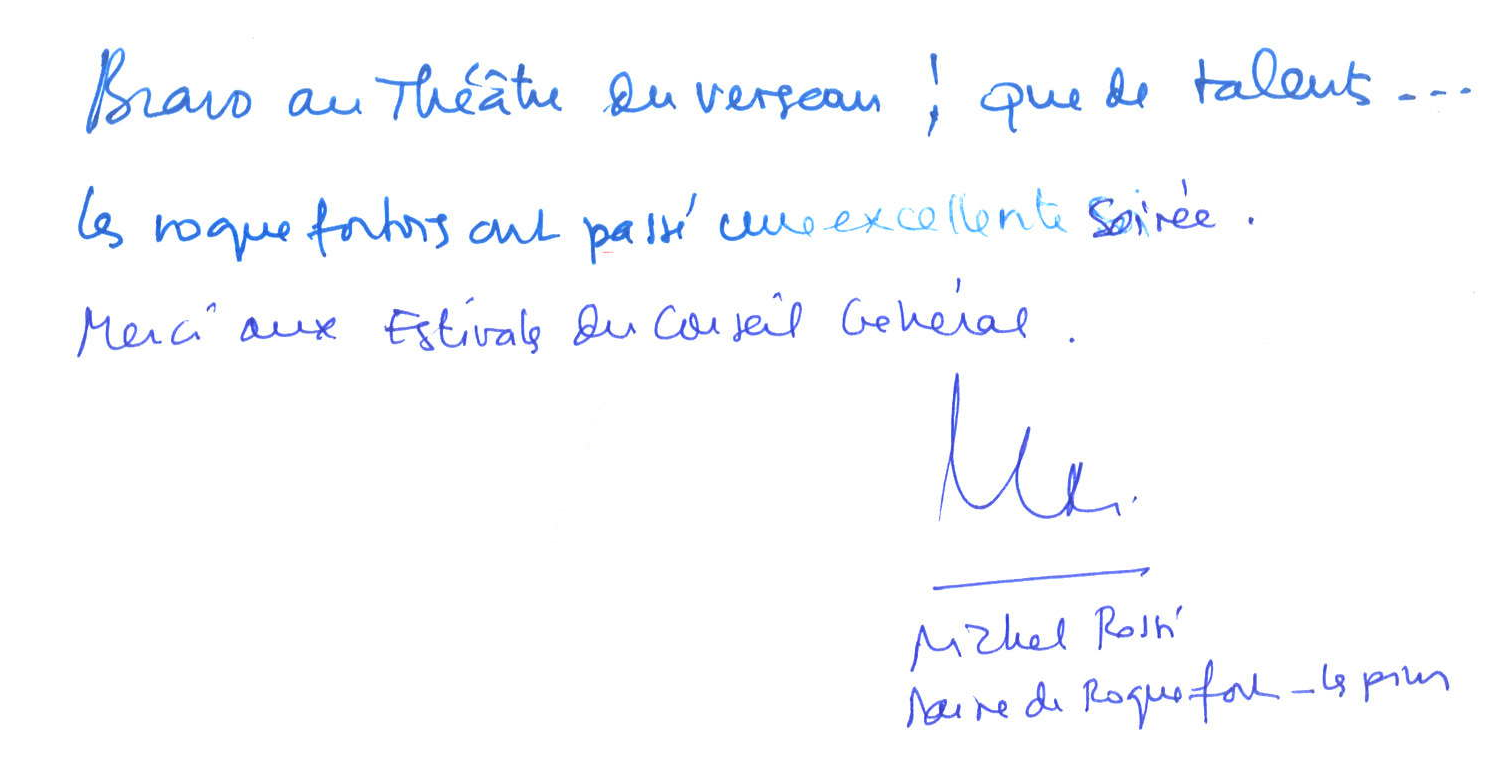 Bravo au Théâtre du verseau ! que de talents ---
les roquefortois ont passé une excellente soirée.
Merci aux Estivales du Conseil Général.
Michel Rossi
Maire de Roquefort-les pins